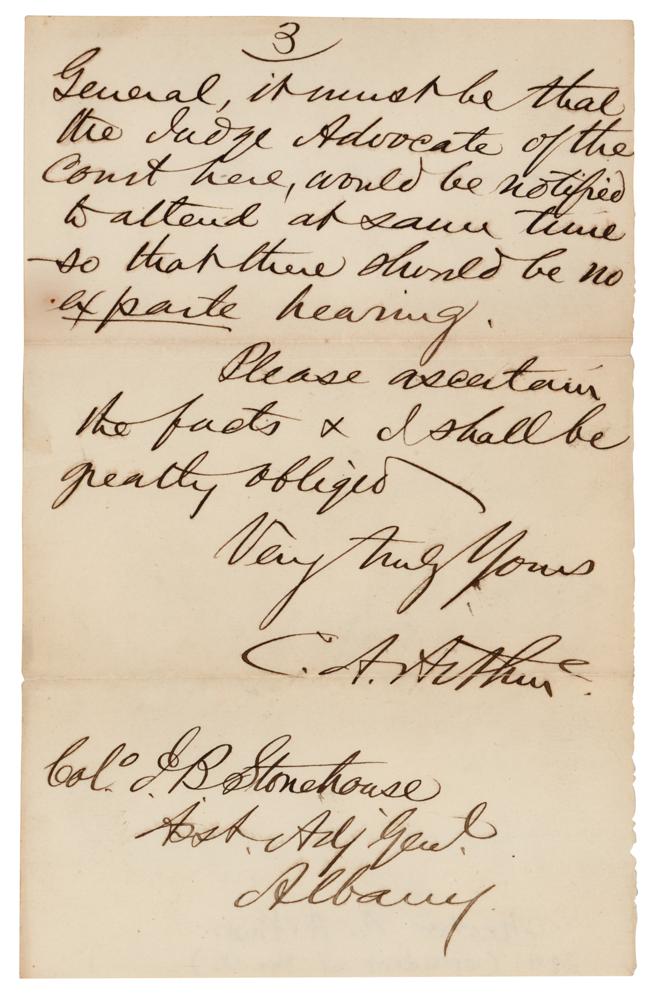 3
General, it must be that
the Judge Advocate of the
Court here, would be notified
to attend at same time
-so that there should be no
exparte hearing.
Please ascertain
the facts & I shall be
greatly obliged
Very truly Yours
C. A. Arthur.
Col.o J. B Stonehouse
Asst. Adj Genl.
Albany.